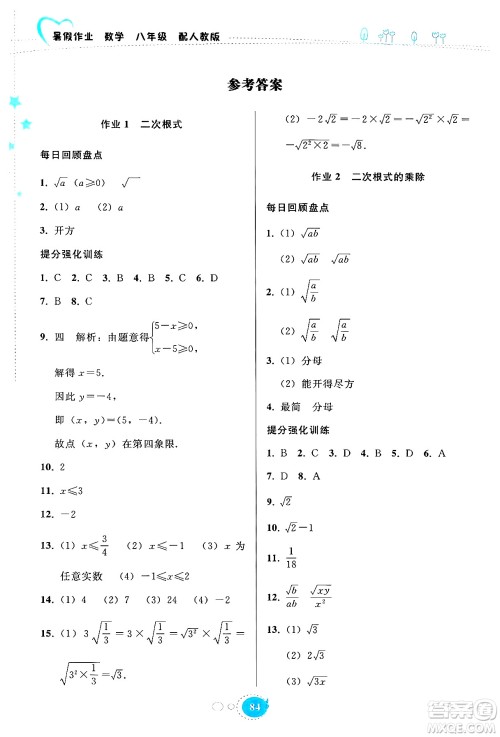 暑假作业 数学 八年级 配人教版
参考答案
作业 1 二次根式
每日回顾盘点
1. √a (a≥0) √
2. (1) a (2) a
3. 开方
提分强化训练
1. C 2. C 3. B 4. C 5. C 6. D
7. B 8. C
9. 四 解析：由题意得{5-x≥0,
x-5≥0,
解得 x=5.
此时 y=-4,
即 (x, y)=(5, -4).
故点(x, y)在第四象限.
10. 2
11. x≤3
12. -2
13. (1) x≤3/4 (2) x≤-1 (3) x 为
任意实数 (4) -1≤x≤3
14. (1) 4 (2) 7 (3) 24 (4) 2
15. (1) 3√(1/3) = 3×√(1/3) = √(3²)×√(1/3) =
√(3²×1/3) = √3.
(2) -2√2 = -2×√2 = -√(2²)×√2 =
-√(2²×2) = -√8.
作业 2 二次根式的乘除
每日回顾盘点
1. (1) √(ab)
(2) √(ab)
2. (1) √(a/b)
(2) √(a/b)
3. (1) 分母
(2) 能开得尽方
4. 最简 分母
提分强化训练
1. B 2. C 3. D 4. B 5. D 6. A
7. D 8. A
9. √2
10. √2-1
11. 1/18
12. √b/(ab) √(xy)/x²
13. (1) √3
(2) √3
84
答案圈